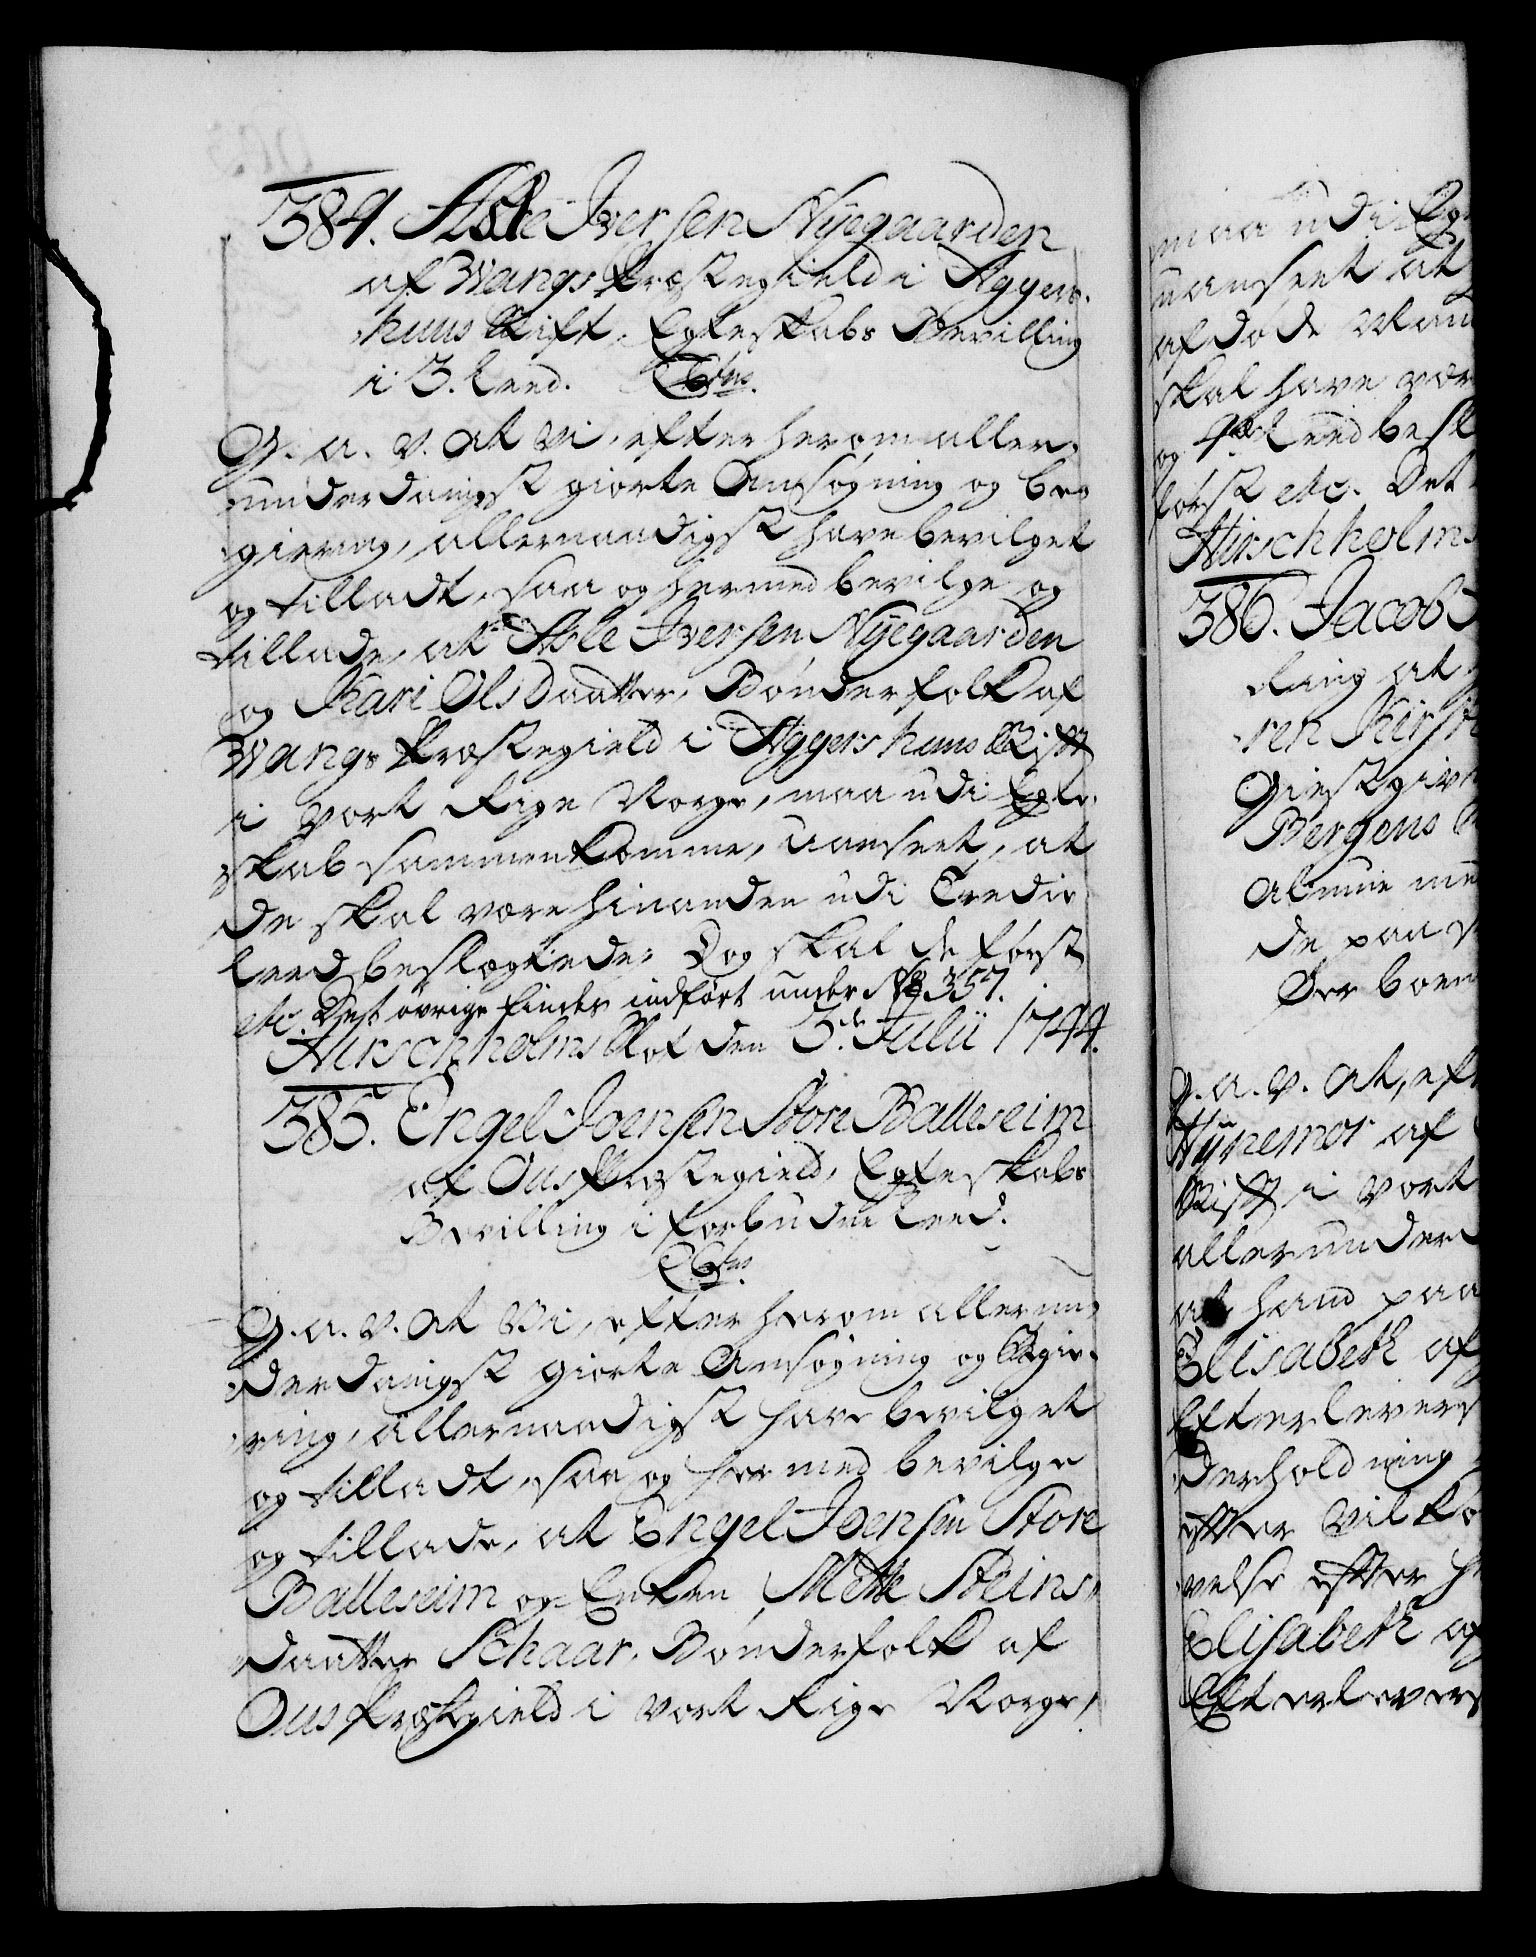 384. Asle Iversen Nÿegaarden
af Wangs Præstegield i Aggers-
huus Stift, Egteskabs Bevilling
i 3. Leed.
G. a. v. at vi, efter herom aller-
underdanigst giorte Ansøgning og Be-
giering, allernaadigst have bevilget
og tilladt, saa og hermed bevilge og
tillade, at Asle Iversen Nÿegaarden
og Kari Olsdaatter, Bønderfolk af
Wangs Præstegield i Aggershuus Stift
i vort Rige Norge, maa udi Egte-
skab sammenkomme, uanseet, at
de skal være hinanden udi Tredie
Leed beslægtede; Dog skal de først
etc. Dest øvrige findes indført under No 357.
Hirschholms Slot den 3de Julii 1744.
385. Engel Joensen Store Balleseim
af Ous Præstegield, Egteskabs
Bevilling i forbudne Leed.
G. a. v. at Vi, efter herom allerun-
derdanigst giorte Ansøgning og Begie-
ring, allernaadigst have bevilget
og tilladt, saa og hermed bevilge
og tillade, at Engel Joensen Store
Balleseim og Enken Mette Steins-
daatter Schaar, Bønderfolk af
Ous Præstegield i vort Rige Norge,
maa udi Eg
uanseet at
afdøde Man
skal have vær
og 4de Leed besl
først etc. Det
Hirschholms
386. Jacob
ring at
ren Kirst
Giestgiv
Bergens
Almue me
de paa
der boen
G. a. v. at, eft
Hÿnemor af
Stift i vort
allerunder
at hand paa
Elisabeth af
Efterlevers
derholdning
efter Vilko
velse efter h
Elisabeth af
Efterlevers